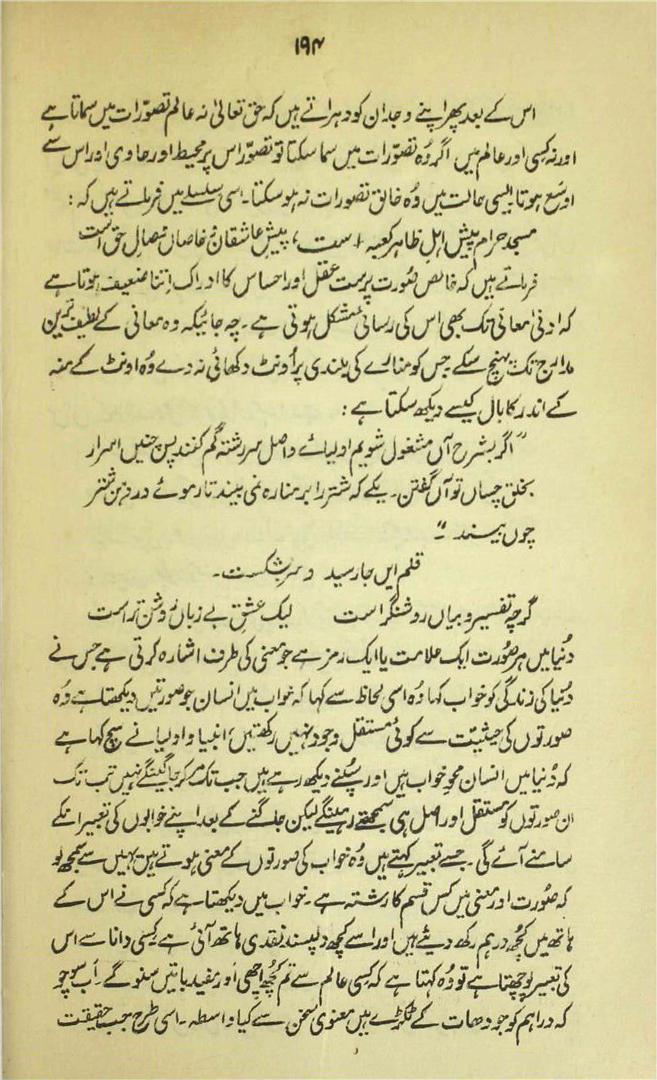 ۱۹۴
اس کے بعد پھر اپنے وجدان کو دہراتے ہیں کہ حق تعالیٰ نہ عالم تصوّرات میں سماتا ہے
اور نہ کسی اور عالم میں اگر وُہ تصوّرات میں سما سکتا تو تصوّر اس پر محیط اور حاوی اور اس سے
اوسع ہوتا ایسی حالت میں وُہ خالق تصورات نہ ہو سکتا۔ اسی سلسلے میں فرماتے ہیں کہ :
مسجد حرام پیش اہلِ ظاہر کعبہ است، پیشِ عاشقان و خاصان وصالِ حق است
فرماتے ہیں کہ خالص صُورت پرست عقل اور احساس کا ادراک اِتنا ضعیف ہوتا ہے
کہ ادنیٰ معانی تک بھی اس کی رسائی مُشکل ہوتی ہے۔ چہ جائیکہ وہ معانی کے لطیف ترین
مدارج تک پہنچ سکے جس کو منارے کی بلندی پر اُونٹ دکھائی نہ دے وُہ اونٹ کے منہ
کے اندر کا بال کیسے دیکھ سکتا ہے :
”اگر بشرح آں مشغول شویم اولیائے واصل سررشتہ گم کنند پس چنیں اسرار
بخلق چساں تو آں گفتن۔ یکے کہ شتر را بر منارہ نمی بیند تار موئے در دہن شتر
چوں بیند “
قلم ایں جا رسید و سر بشکست۔
گرچہ تفسیر و بیاں روشنگر است لیک عشقِ بے زباں روشن تر است
دُنیا میں ہر صُورت ایک علامت یا ایک رمز ہے جو معنی کی طرف اشارہ کرتی ہے جس نے
دنیا کی زندگی کو خواب کہا وُہ اسی لحاظ سے کہا کہ خواب میں انسان جو صورتیں دیکھتا ہے وُہ
صورتوں کی حیثیّت سے کوئی مستقل وجود نہیں رکھتیں، انبیا و اولیا نے سچ کہا ہے
کہ دُنیا میں انسان محوِ خواب ہیں اور سپنے دیکھ رہے ہیں جب تک مر کر جاگینگے نہیں تب تک
ان صورتوں کو مستقل اور اصل ہی سمجھتے رہینگے لیکن جاگنے کے بعد اپنے خوابوں کی تعبیر انکے
سامنے آئے گی۔ جسے تعبیر کہتے ہیں وُہ خواب کی صورتوں کے معنی ہوتے ہیں یہیں سے سمجھ لو
کہ صُورت اور معنی میں کس قسم کا رشتہ ہے۔ خواب میں دیکھتا ہے کہ کسی نے اس کے
ہاتھ میں کچُھ درہم رکھ دیئے ہیں اور اسے کچھ دلپسند نقدی ہاتھ آئی ہے کسی دانا سے اس
کی تعبیر پوچھتا ہے تو وُہ کہتا ہے کہ کسی عالم سے تم کچُھ اچھی اور مفید باتیں سنو گے۔ اب سوچو
کہ دراہم کو جو دھات کے ٹکڑے ہیں معنوی سخن سے کیا واسطہ۔ اسی طرح جب حقیقت